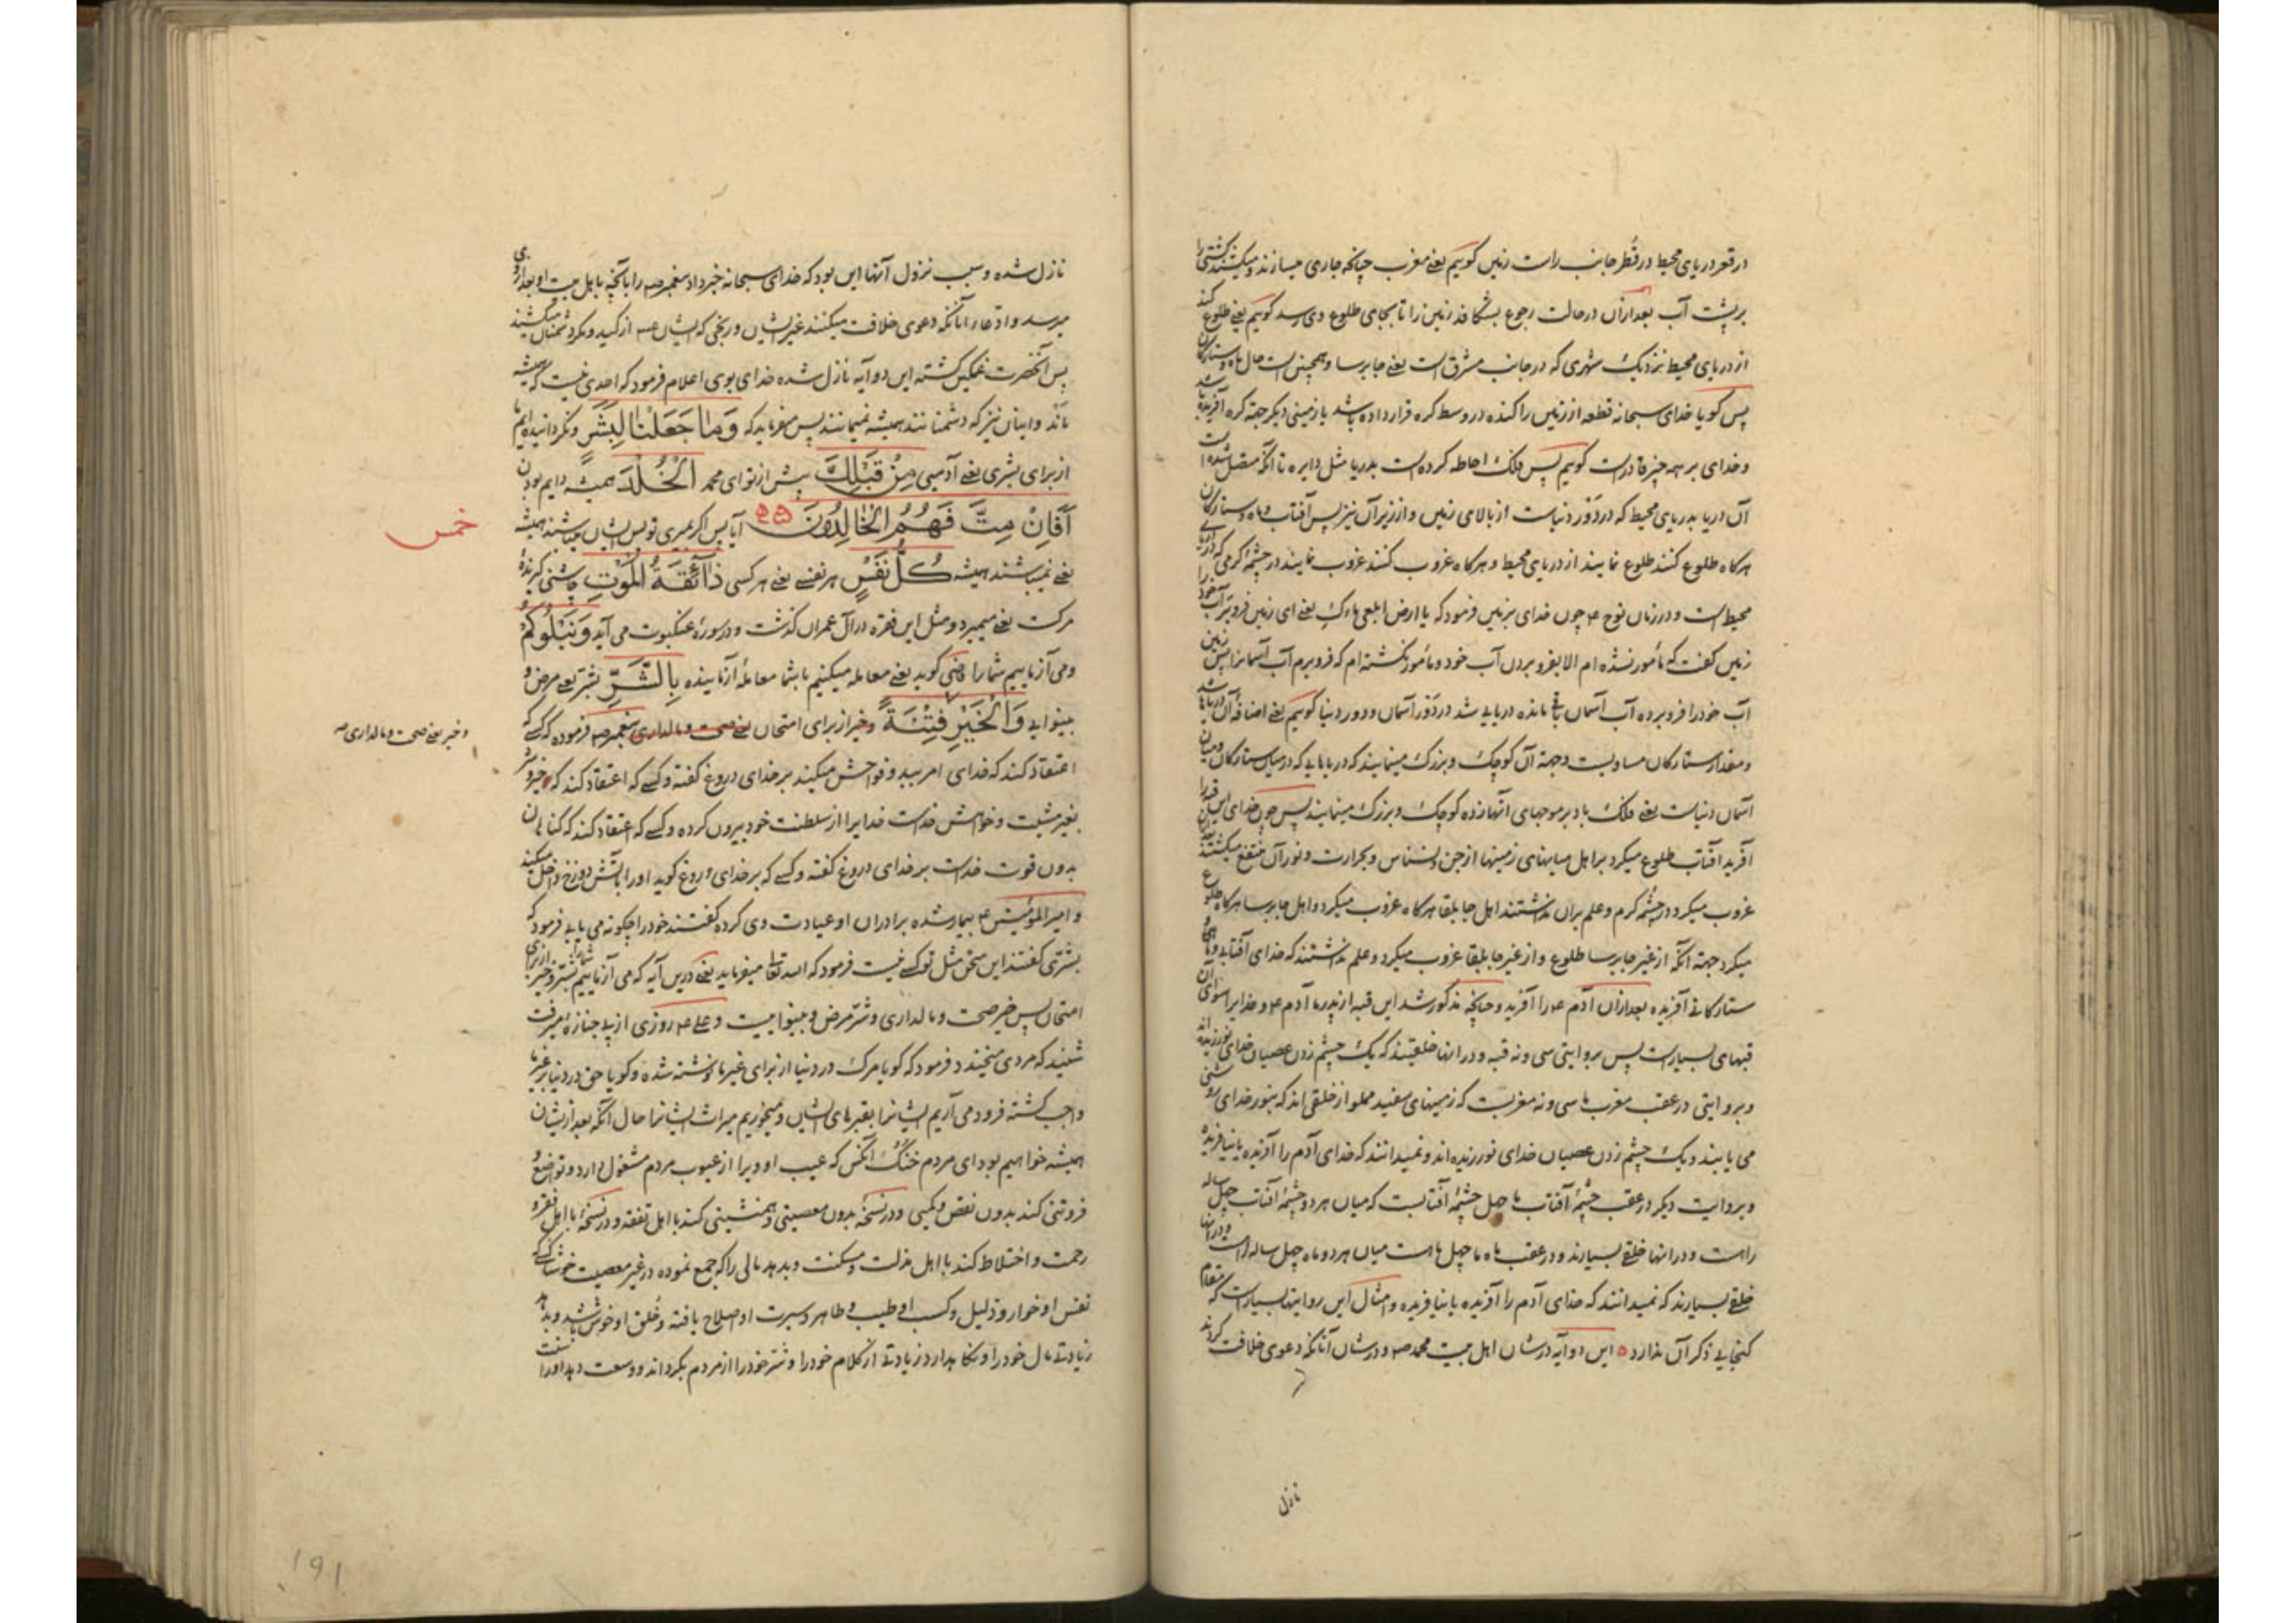 در قعر دریای محیط در قُطر جانب راست زمین کوییم یعنی مغرب چنانکه جاری میسازند و میکشند کشتی را
بر پشت آب بعد ازان در حالت رجوع بشکافد زمین را تا بجای طلوع وی رسد کوییم یعنی طلوع کند
از دریای محیط نزدیک شهری که در جانب مشرق است یعنی جابرسا و همچنین است حال ماه و ستارکان
پس کویا خدای سبحانه قطعه از زمین را کنده در وسط کره قرار داده باشد یا زمینی دیکر جهة کره آفریده باشد
و خدای بر همه چیز قادرست کوییم پس فلک احاطه کرده است بدریا مثل دایره تا آنکه متصل شده است
آن دریا بدریای محیط که در دَوْر دنیاست از بالای زمین و از زیر آن نیز پس آفتاب و ماه و ستارکان
هرکاه طلوع کنند طلوع نمایند از دریای محیط و هرکاه غروب کنند غروب نمایند در چشمهٔ کرمی که دریای
محیط است و در زمان نوح ع چون خدای بزمین فرمود که یا ارض ابلعی ماءک یعنی ای زمین فرو بر آب خود را
زمین کفت که مأمور نشده ام الا بفرو بردن آب خود و مأمور نکشته ام که فرو برم آب آسمانرا پس زمین
آب خود را فرو برده آب آسمان باقی مانده دریایی شد در دَوْر آسمان و دور دنیا کوییم یعنی اضافه آن دریاها شد
و مقدار ستارکان مساویست و جهة آن کوچک و بزرک مینمایند که دریایی که در میان ستارکان و میان
آسمان دنیاست یعنی فلک باد بر موجهای آنها زده کوچک و بزرک مینمایند پس چون خدای این قبه را
آفرید آفتاب طلوع میکرد بر اهل میانهای زمینها از جن و نسناس و بحرارت و نور آن منتفع میکشتند
غروب میکرد در چشمه کرم و علم بران نداشتند اهل جابلقا هرکاه غروب میکرد و اهل جابرسا هرکاه طلوع
میکرد جهة آنکه از غیر جابرسا طلوع و از غیر جابلقا غروب میکرد و علم نداشتند که خدای آفتابی و ماهی
ستارکانی آفریده بعد ازان آدم ع را آفرید و چنانچه مذکور شد این قبه از پدر ما آدم ع و خدایرا سوای آن
قبهای بسیارست پس بروایتی سی و نه قبه و در انها خلقیند که یک چشم زدن عصیان خدای نورزیده اند
و بروایتی در عقب مغرب ما سی و نه مغربست که زمینهای سفید مملو از خلقی اند که بنور خدای روشنی
می یابند و یک چشم زدن عصیان خدای نورزیده اند و نمیدانند که خدای آدم را آفریده یا نیافریده
و بروایت دیکر در عقب چشمهٔ آفتاب ما چهل چشمهٔ آفتابست که میان هر دو چشمهٔ آفتاب چهل ساله
راهست و در انها خلقی بسیارند و در عقب ماه ما چهل ماهست میان هر دو ماه چهل ساله راهست و در انها
خلقی بسیارند که نمیدانند که خدای آدم را آفریده یا نیافریده و امثال این روایتها بسیارست که مقام
کنجایی ذکر آن ندارد ه این دو آیه در شان اهل بیت محمد ص و در شان آنانکه دعوی خلافت کردند
نازل
نازل شده و سبب نزول آنها این بود که خدای سبحانه خبر داد پیغمبر ص را بآنچه باهل بیت او بعد از وی
میرسد و ادعاء آنانکه دعوی خلافت میکنند غیر ایشان و رنجی که ایشان ع از کید و مکر دشمنان میکشند
پس آنحضرت غمکین کشته این دو آیه نازل شده خدای بوی اعلام فرمود که احدی نیست که همیشه
ماند و اینان نیز که دشمنانند همیشه نمیمانند پس میفرماید که وَمٰا جَعَلْنٰا لِبَشَرٍ و نکردانیده ایم ما
از برای بشری یعنی آدمیی مِنْ قَبْلِكَ پیش از تو ای محمد الْخُلْدَ همیشه دایم بودن
أَفَإِنْ مِتَّ فَهُمُ الْخٰالِدُونَ ٣٥ آیا پس اکر بمیری تو پس ایشان میباشند همیشه
خمس
یعنی نمیباشند همیشه كُلُّ نَفْسٍ هر نفسی یعنی هر کسی ذٰائِقَةُ الْمَوْتِ چاشنی کیرندهٔ
مرکست یعنی میمیرد و مثل این فقره در آل عمران کذشت و در سورهٔ عنکبوت می آید وَنَبْلُوكُمْ
و می آزماییم شما را قمی کوید یعنی معامله میکنیم با شما معاملهٔ آزماینده بِالشَّرِّ بشر یعنی مرض و
بینوایی وَالْخَيْرِ فِتْنَةً و خیر از برای امتحان یعنی صحت و مالداری پیغمبر ص فرموده که کسی که
و خیر یعنی صحت و مالداری صح
اعتقاد کند که خدای امر ببد و فواحش میکند بر خدای دروغ کفته و کسی که اعتقاد کند که خیر و شر
بغیر مشیت و خواهش خداست خدایرا از سلطنت خود بیرون کرده و کسی که اعتقاد کند که کناهان
بدون قوت خداست بر خدای دروغ کفته و کسی که بر خدای دروغ کوید او را بآتش دوزخ داخل میکند
و امیر المؤمنین ع بیمار شده برادران او عیادت وی کرده کفتند خود را چکونه می یابی فرمود که
بشرّی کفتند این سخن مثل تو کسی نیست فرمود که الله تعا میفرماید یعنی درین آیه که می آزماییم شما را بشر و خیر از برای
امتحان پس خیر صحت و مالداری و شرّ مرض و بینواییست و علی ع روزی از پی جنازهٔ میرفت
شنید که مردی میخندد فرمود که کویا مرک در دنیا از برای غیر ما نوشته شده و کویا حق در دنیا بر غیر ما
واجب کشته فرود می آریم ایشانرا بقبرهای ایشان و میخوریم میراث ایشانرا حال آنکه بعد از ایشان
همیشه خواهیم بود ای مردم خُنُک آنکس که عیب او ویرا از عیوب مردم مشغول دارد و تواضع و
فروتنی کند بدون نقص و کمیی و در نسخهٔ بدون معصیتی و همنشینی کند با اهل تفقه و در نسخهٔ با اهل فقر و
رحمت و اختلاط کند با اهل مذلت و مسکنت و بدهد مالی را که جمع نموده در غیر معصیت خوشا کسی که
نفس او خوار و ذلیل و کسب او طیب و طاهر و سیرت او اصلاح یافته و خُلق او خوش باشد و بدهد
زیادتی مال خود را و نکاهدارد زیادتی از کلام خود را و شرّ خود را از مردم بکرداند و وسعت دهد او را سنت
191